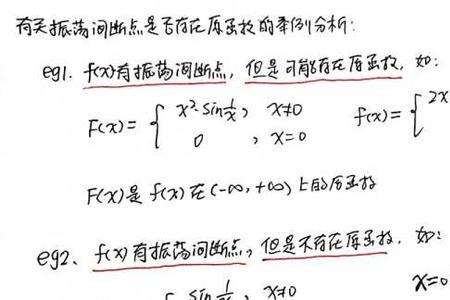 有关振荡间断点是否存在原函数的举例分析:
eg1. f(x)有振荡间断点, 但是可能存在原函数, 如:
F(x)= { x²·sin 1/x, x≠0 f(x)= { 2x
0 , x=0
F(x)是 f(x) 在(-∞, +∞)上的原函数
eg2、f(x)有振荡间断点, 但是不存在原函数. 如:
sin 1/x, x≠0 x=0